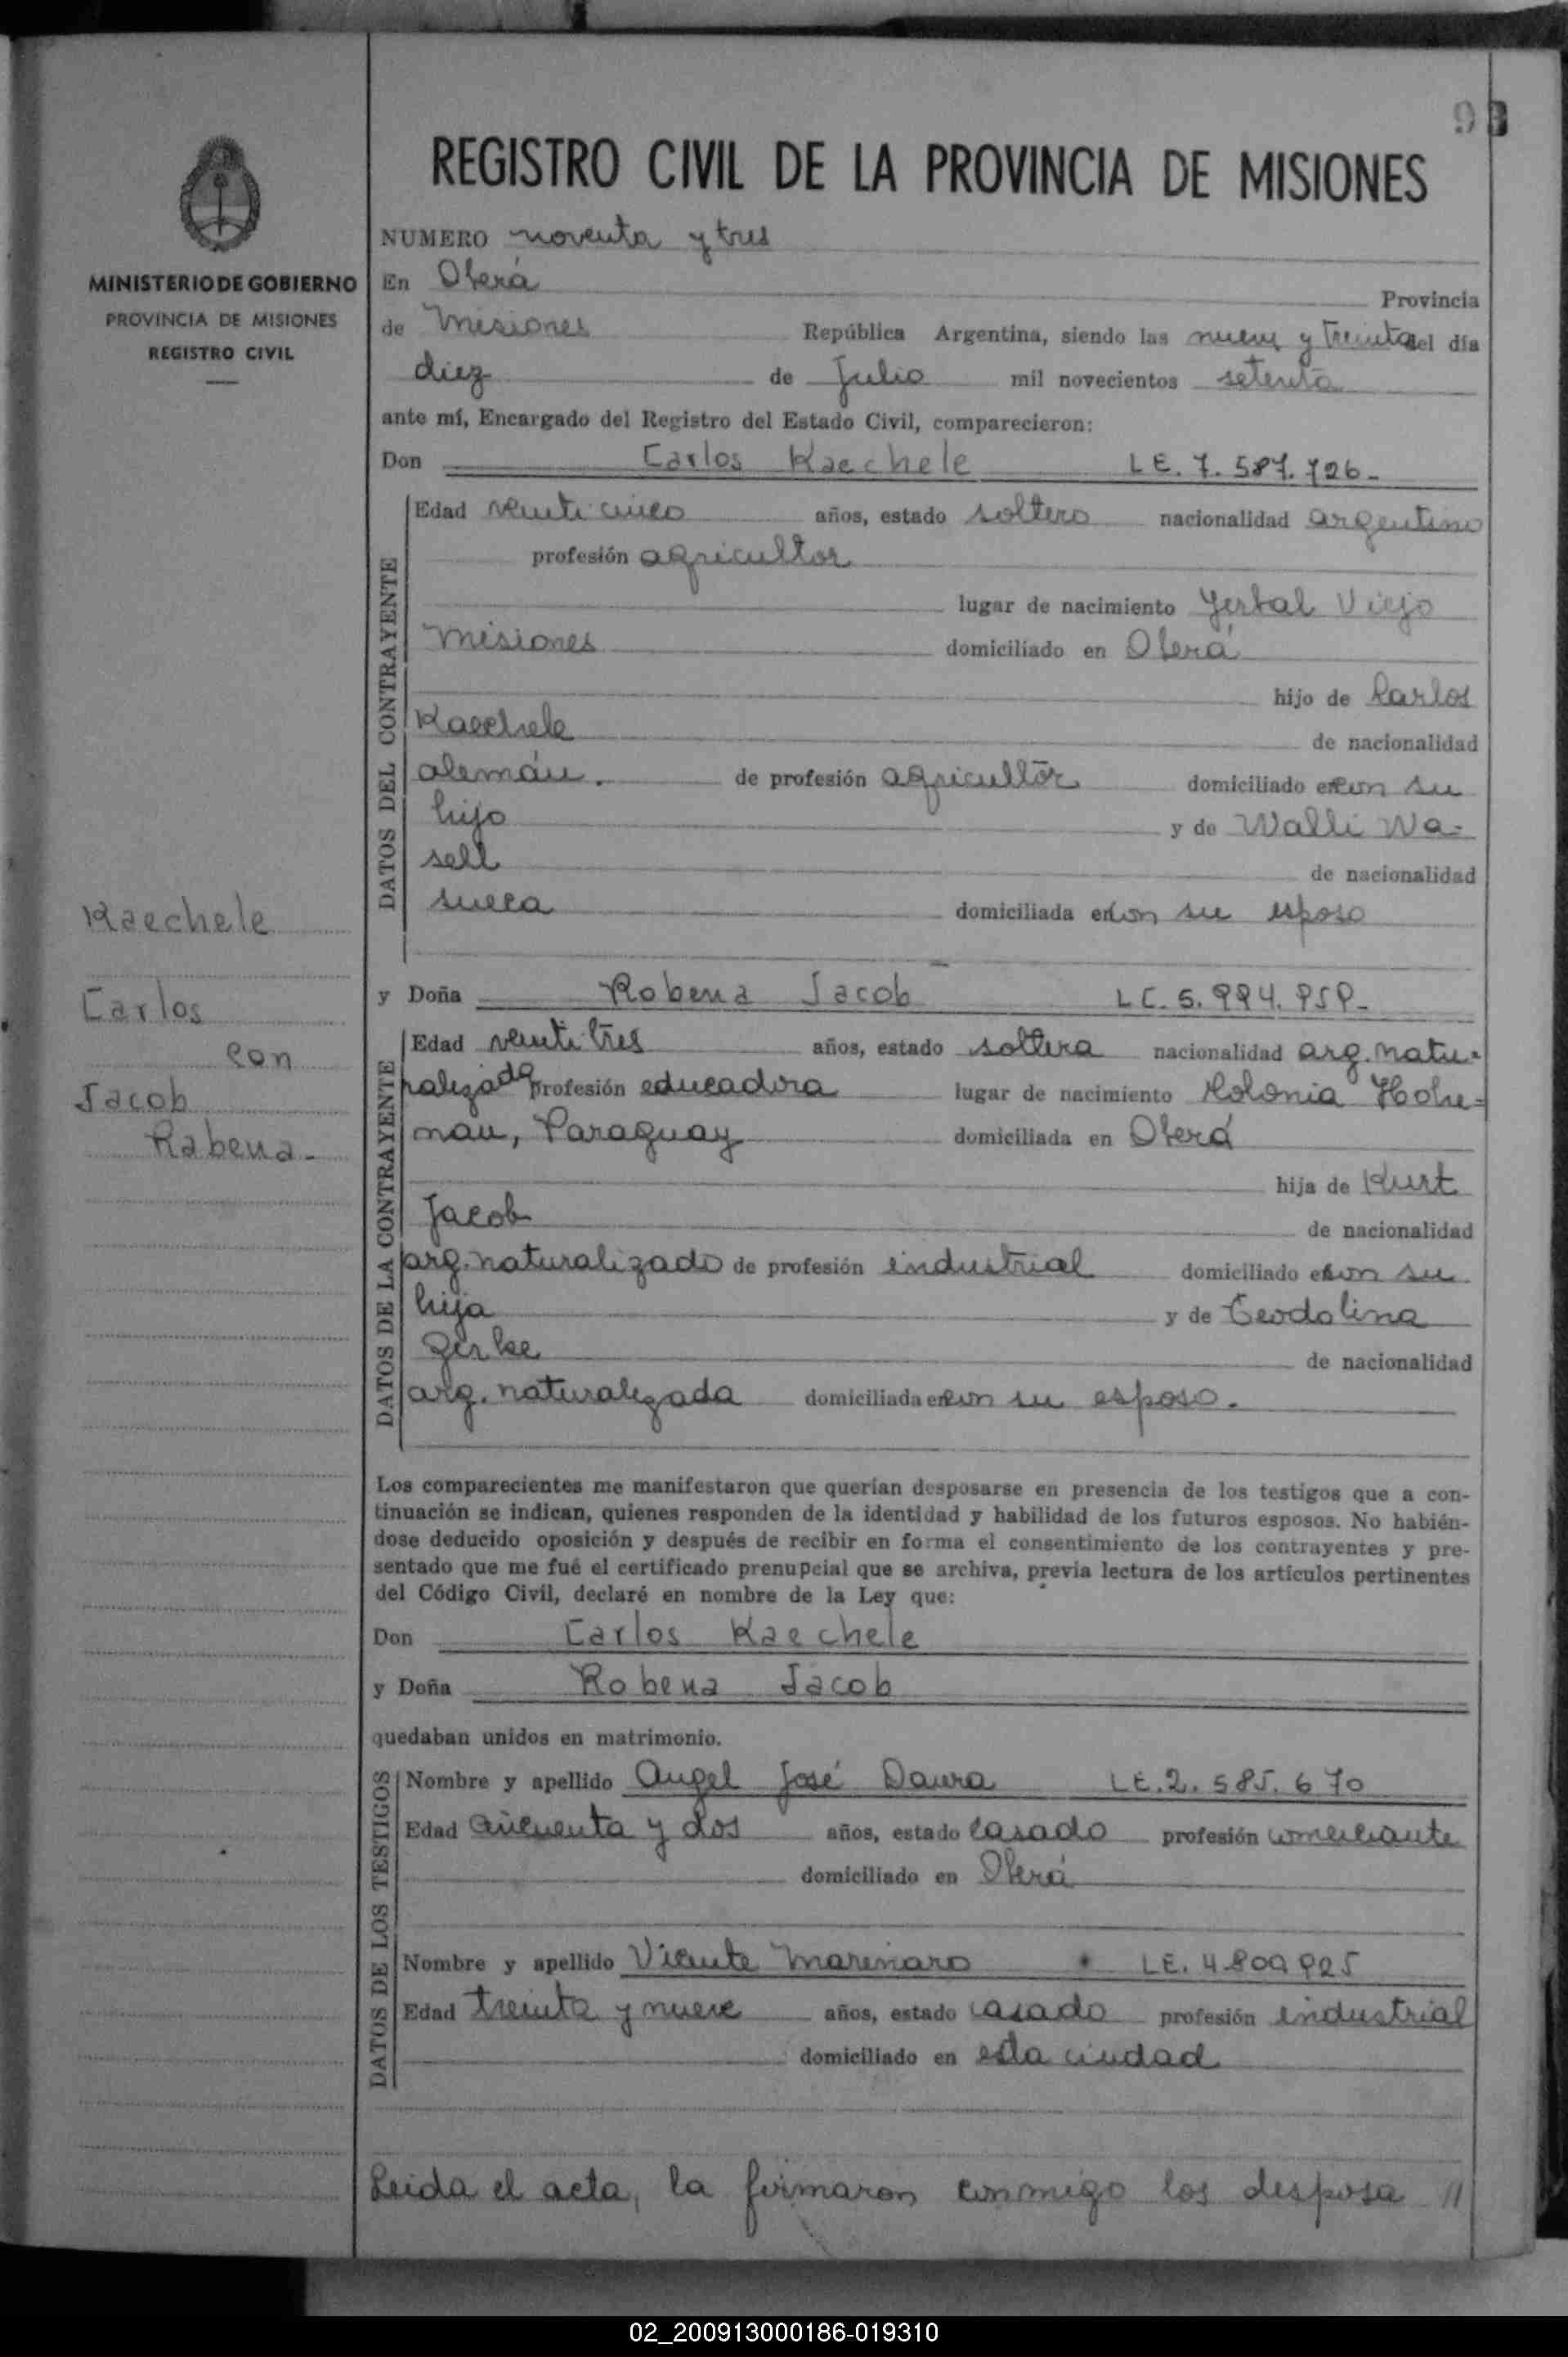 93
REGISTRO CIVIL DE LA PROVINCIA DE MISIONES
NUMERO noventa y tres
MINISTERIO DE GOBIERNO
PROVINCIA DE MISIONES
REGISTRO CIVIL
En Oberá Provincia
de Misiones República Argentina, siendo las nueve y treinta del día
diez de Julio mil novecientos setenta
ante mí, Encargado del Registro del Estado Civil, comparecieron:
Don Carlos Kaechele L E. 7. 587. 726-
DATOS DEL CONTRAYENTE
Edad veinticinco años, estado soltero nacionalidad argentino
profesión agricultor
lugar de nacimiento Yerbal Viejo
Misiones domiciliado en Oberá
hijo de Carlos
Kaechele de nacionalidad
alemán. de profesión agricultor domiciliado en con su
hijo y de Walli Wa-
sell de nacionalidad
sueca domiciliada en con su esposo
Kaechele
Carlos
con
Jacob
Rabena-
y Doña Robena Jacob L C. 5.
DATOS DE LA CONTRAYENTE
Edad veintitres años, estado soltera nacionalidad arg. natu-
ralizada profesión educadora lugar de nacimiento Kolonia Hohe=
nau, Paraguay domiciliada en Oberá
hija de Kurt
Jacob de nacionalidad
arg. naturalizado de profesión industrial domiciliado en con su
hija y de Teodolina
Zerke de nacionalidad
arg. naturalizada domiciliada en con su esposo.
Los comparecientes me manifestaron que querían desposarse en presencia de los testigos que a con-
tinuación se indican, quienes responden de la identidad y habilidad de los futuros esposos. No habién-
dose deducido oposición y después de recibir en forma el consentimiento de los contrayentes y pre-
sentado que me fué el certificado prenupcial que se archiva, previa lectura de los artículos pertinentes
del Código Civil, declaré en nombre de la Ley que:
Don Carlos Kaechele
y Doña Robena Jacob
quedaban unidos en matrimonio.
DATOS DE LOS TESTIGOS
Nombre y apellido Angel José Daura LE. 2. 585. 670
Edad cincuenta y dos años, estado casado profesión comerciante
domiciliado en Oberá
Nombre y apellido Vicente Marinaro LE. 4.809.925
Edad treinta y nueve años, estado casado profesión industrial
domiciliado en esta ciudad
Leida el acta, la firmaron conmigo los desposa //
02_200913000186-019310